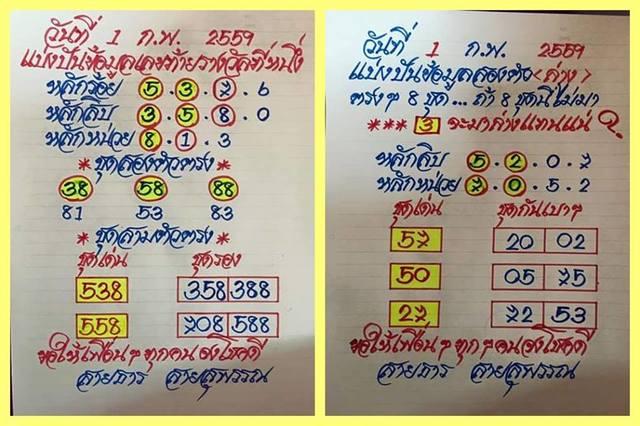 วันที่ 1 ก.พ. 2559
แบ่งปันข้อมูลเลขท้ายรางวัลที่หนึ่ง
หลักร้อย 5 . 3 . 7 . 6
หลักสิบ 3 . 5 . 8 . 0
หลักหน่วย 8 . 1 . 3
* ชุดสองตัวตรง *
38 58 88
81 53 83
* ชุดสามตัวตรง *
ชุดเด่น ชุดรอง
538 358 388
558 708 588
ขอให้เพื่อนๆทุกคนจงโชคดี
สายธาร สายสุพรรณ
วันที่ 1 ก.พ. 2559
แบ่งปันข้อมูลสองตัว <ล่าง>
ตรงๆ 8 ชุด... ถ้า 8 ชุดนี้ไม่มา
*** 3 จะมาล่างแทนแน่
หลักสิบ 5 . 2 . 0 . 7
หลักหน่วย 7 . 0 . 5 . 2
ชุดเด่น ชุดกันเบาๆ
57 20 02
50 05 75
27 72 53
ขอให้เพื่อนๆทุกๆคนจงโชคดี
สายธาร สายสุพรรณ